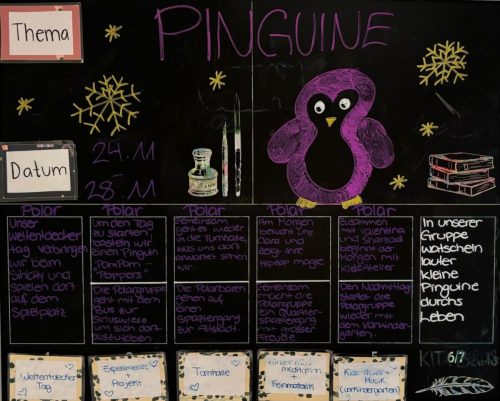 Thema
PINGUINE
Datum
24.11
28.11
Polar
Unser
Weltentdecker
tag verbringen
wir beim
Sihlcity und
spielen dort
auf dem
Spielplatz
Polar
Um den Tag
zu starten
basteln wir
einen Pinguin
"PomPom
Poppers"
Die Polargruppe
geht mit dem
Bus zur
Siriuswiese
um sich dort
auszutoben
Polar
Gemeinsam
geht es wieder
in die Turnhalle,
was uns dort
erwartet sehen
wir.
Die Polarbären
gehen auf
einen
Spaziergang
zur Allstadt.
Polar
Am Morgen
besucht uns
Cara und
zeigt ihre
HipHop magie.
Gemeinsam
macht die
Polargruppe
ein Quartier-
spaziergang
mit grosser
Freude
Polar
Zusammen
mit Valentina
und
beginnt der
Morgen mit
KidsAtelier
Den Nachmittag
startet die
Polargruppe
wieder mit
dem Vorkinder-
garten.
In unserer
Gruppe
watscheln
lauter
kleine
Pinguine
durchs
Leben
KITA 6/7
Weltentdecker
Tag
Experiment +
Projekt
Turnhalle
meditation
+
Feinmotorik
+
Musik
(Vorkindergarten)